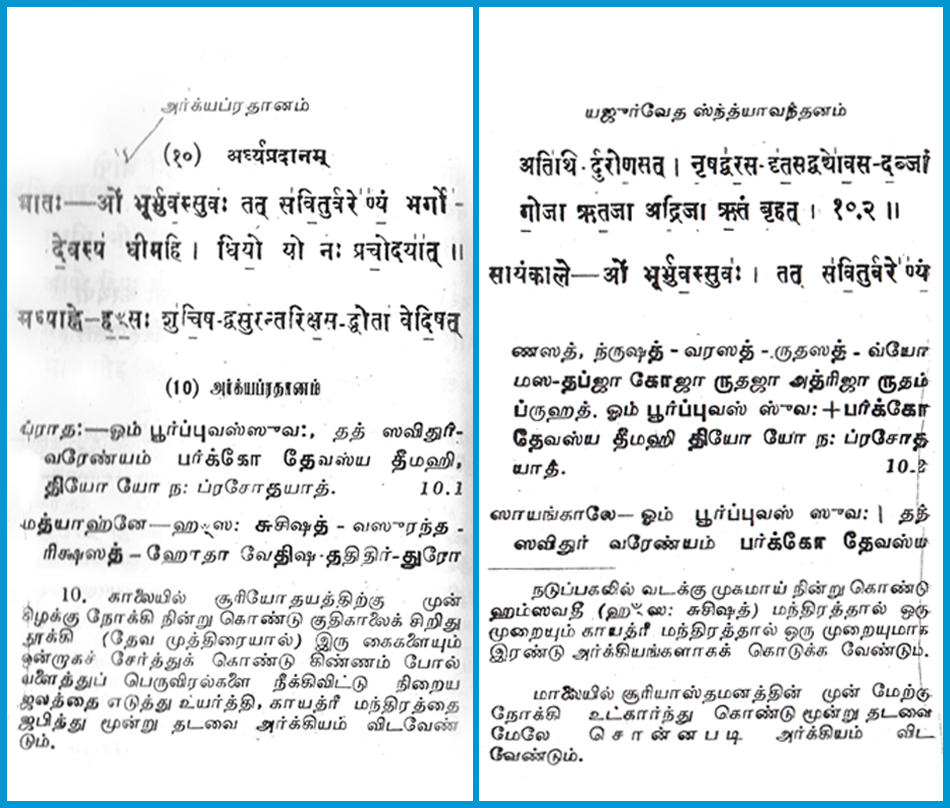 அர்க்யப்ரதானம்
(१०) अर्घ्यप्रदानम्
प्रातः—ओं भूर्भुवस्सुवः तत् सवितुर्वरेण्यं भर्गो-
देवस्य धीमहि । धियो यो नः प्रचोदयात् ॥
मध्याह्ने—हꣳसः शुचिष-द्वसुरन्तरिक्षस-द्धोता वेदिषत्
(10) அர்க்யப்ரதாணம்
ப்ராத:—ஓம் பூர்ப்புவஸ்ஸுவ:, தத் ஸவிதுர்-
வரேண்யம் பர்க்கோ தேவஸ்ய தீமஹி,
தியோ யோ ந: ப்ரசோதயாத். 10.1
மத்யாஹ்னே—ஹꣳஸ: சுசிஷத் - வஸுரந்த-
ரிக்ஷஸத் - ஹோதா வேதிஷ-ததிதிர்-துரோ
10. காலையில் சூரியோதயத்திற்கு முன்
கிழக்கு நோக்கி நின்று கொண்டு குதிகாலைக் சிறிது
தூக்கி (தேவ முத்திரையால்) இரு கைகளையும்
ஒன்றாகச் சேர்த்துக் கொண்டு கிண்ணம் போல்
வளைத்துப் பெருவிரல்களை நீக்கிவிட்டு நிறைய
ஜலத்தை எடுத்து உயர்த்தி, காயத்ரீ மந்திரத்தை
ஜபித்து மூன்று தடவை அர்க்கியம் விடவேண்
டும்.
யஜுர்வேத ஸ்ந்த்யாவந்தனம்
अतिथि-र्दुरोणसत् । नृषद्वरस-दृतसद्व्योमस-दब्जा
गोजा ऋतजा अद्रिजा ऋतं बृहत् । १०.२ ॥
सायंकाले—ओं भूर्भुवस्सुवः । तत् सवितुर्वरेण्यं
ணஸத், ந்ருஷத் - வரஸத் - ருதஸத் - வ்யோ
மஸ-தப்ஜா கோஜா ருதஜா அத்ரிஜா ருதம்
ப்ருஹத். ஓம் பூர்ப்புவஸ் ஸுவ:+பர்க்கோ
தேவஸ்ய தீமஹி தியோ யோ ந: ப்ரசோத
யாத். 10.2
ஸாயங்காலே— ஓம் பூர்ப்புவஸ் ஸுவ: | தத்
ஸவிதுர் வரேண்யம் பர்க்கோ தேவஸ்ய
நடுப்பகலில் வடக்கு முகமாய் நின்று கொண்டு
ஹம்ஸவதீ (ஹꣳஸ: சுசிஷத்) மந்திரத்தால் ஒரு
முறையும் காயத்ரீ மந்திரத்தால் ஒரு முறையுமாக
இரண்டு அர்க்கியங்களாகக் கொடுக்க வேண்டும்.
மாலையில் சூரியாஸ்தமனத்தின் முன் மேற்கு
நோக்கி உட்கார்ந்து கொண்டு மூன்று தடவை
மேலே சொன்னபடி அர்க்கியம் விட
வேண்டும்.